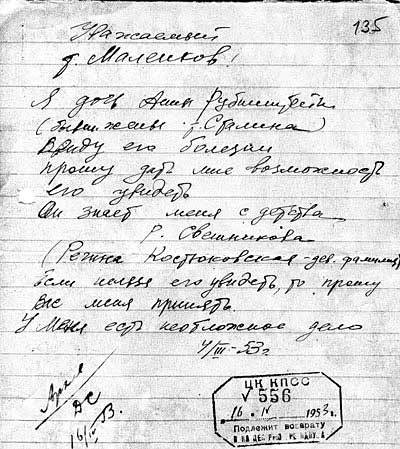 135
Уважаемый
т. Маленков!
Я дочь Анны Рубинштейн
(бывш. жены т. Сталина)
Ввиду его болезни
прошу дать мне возможность
его увидеть
Он знает меня с детства
Р. Свешникова
(Регина Костюковская - дев. фамилия)
Если нельзя его увидеть, то прошу
Вас меня принять.
У меня есть неотложное дело
4/III-53г.
Архив
ДС
16/IV 53.
ЦК КПСС
√ 556
16 IV 1953 г.
Подлежит возврату